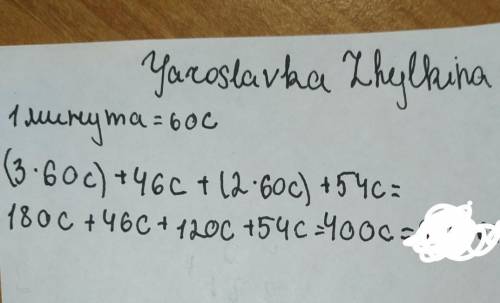 Yaroslavka Zhylkina
1 минута = 60с
(3·60с)+46с+(2·60с)+54с=
180с+46с+120с+54с=400с=